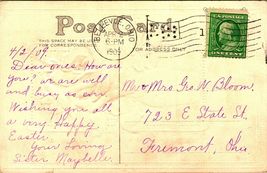 Post Card
THIS SPACE MAY BE USED
FOR CORRESPONDENCE
ADDRESS ONLY
BELLEVUE, OHIO
APR
6-PM
1909
1
U.S. POSTAGE
ONE CENT
4/2/09
Dear ones: How are
you? we are well
and busy as ever.
Wishing you all
a very Happy
Easter.
Your Loving
Sister Maybelle.
Mr & Mrs Geo W. Bloom.
723 E State St,
Fremont, Ohio